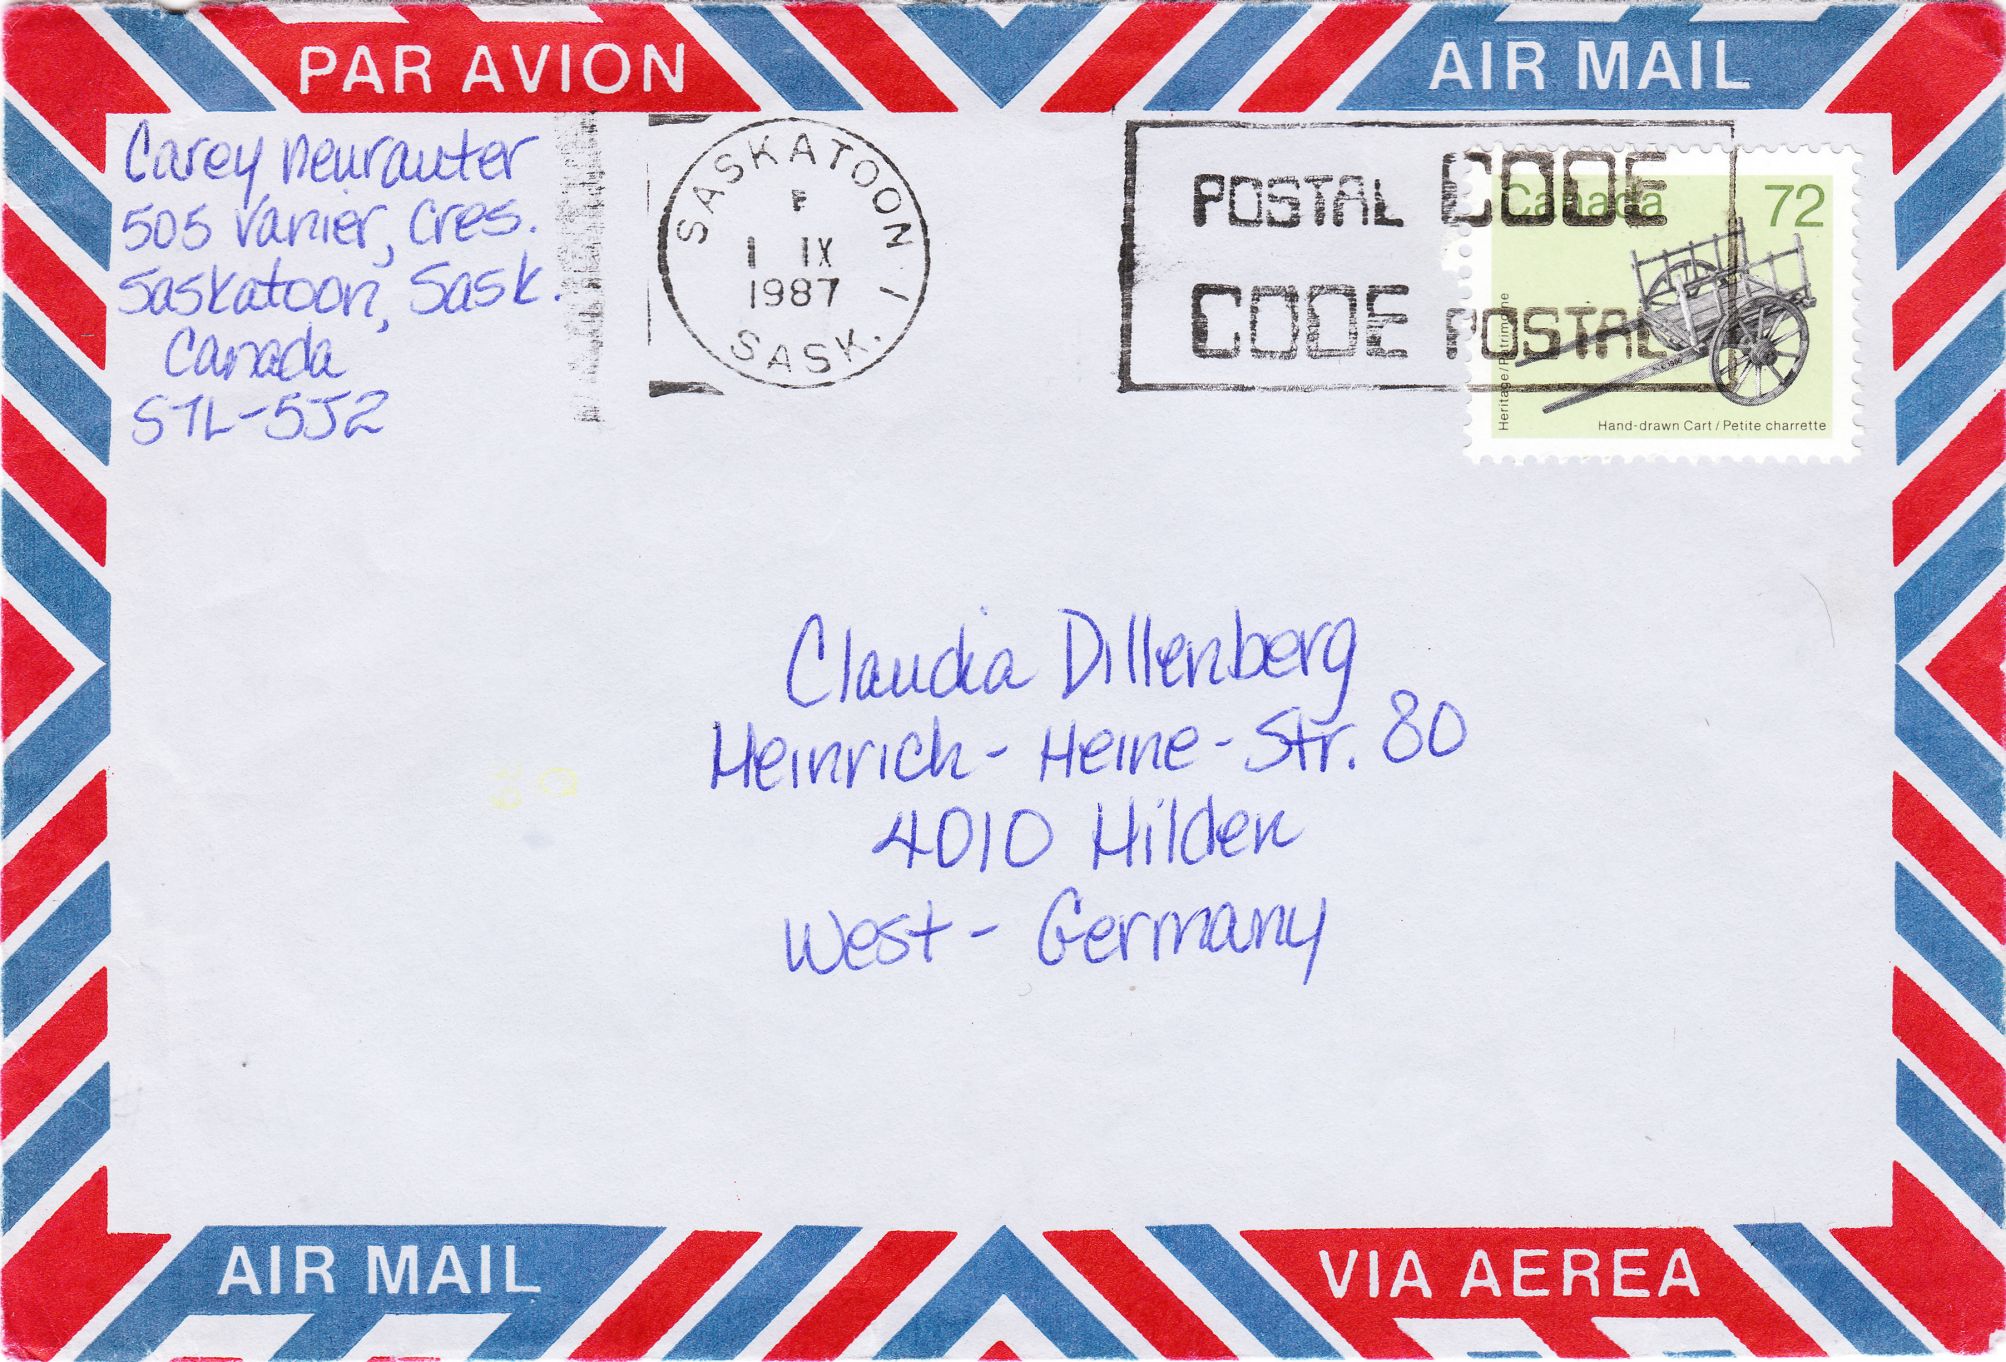 PAR AVION
AIR MAIL
Carey Neurauter
505 Vanier, Cres.
Saskatoon, Sask.
Canada
S7L-5J2
SASKATOON
F
1 IX
1987
SASK.
POSTAL CODE
CODE POSTAL
Canada 72
Heritage/Patrimoine
Hand-drawn Cart / Petite charrette
Claudia Dillenberg
Heinrich-Heine-Str. 80
4010 Hilden
West-Germany
AIR MAIL
VIA AEREA